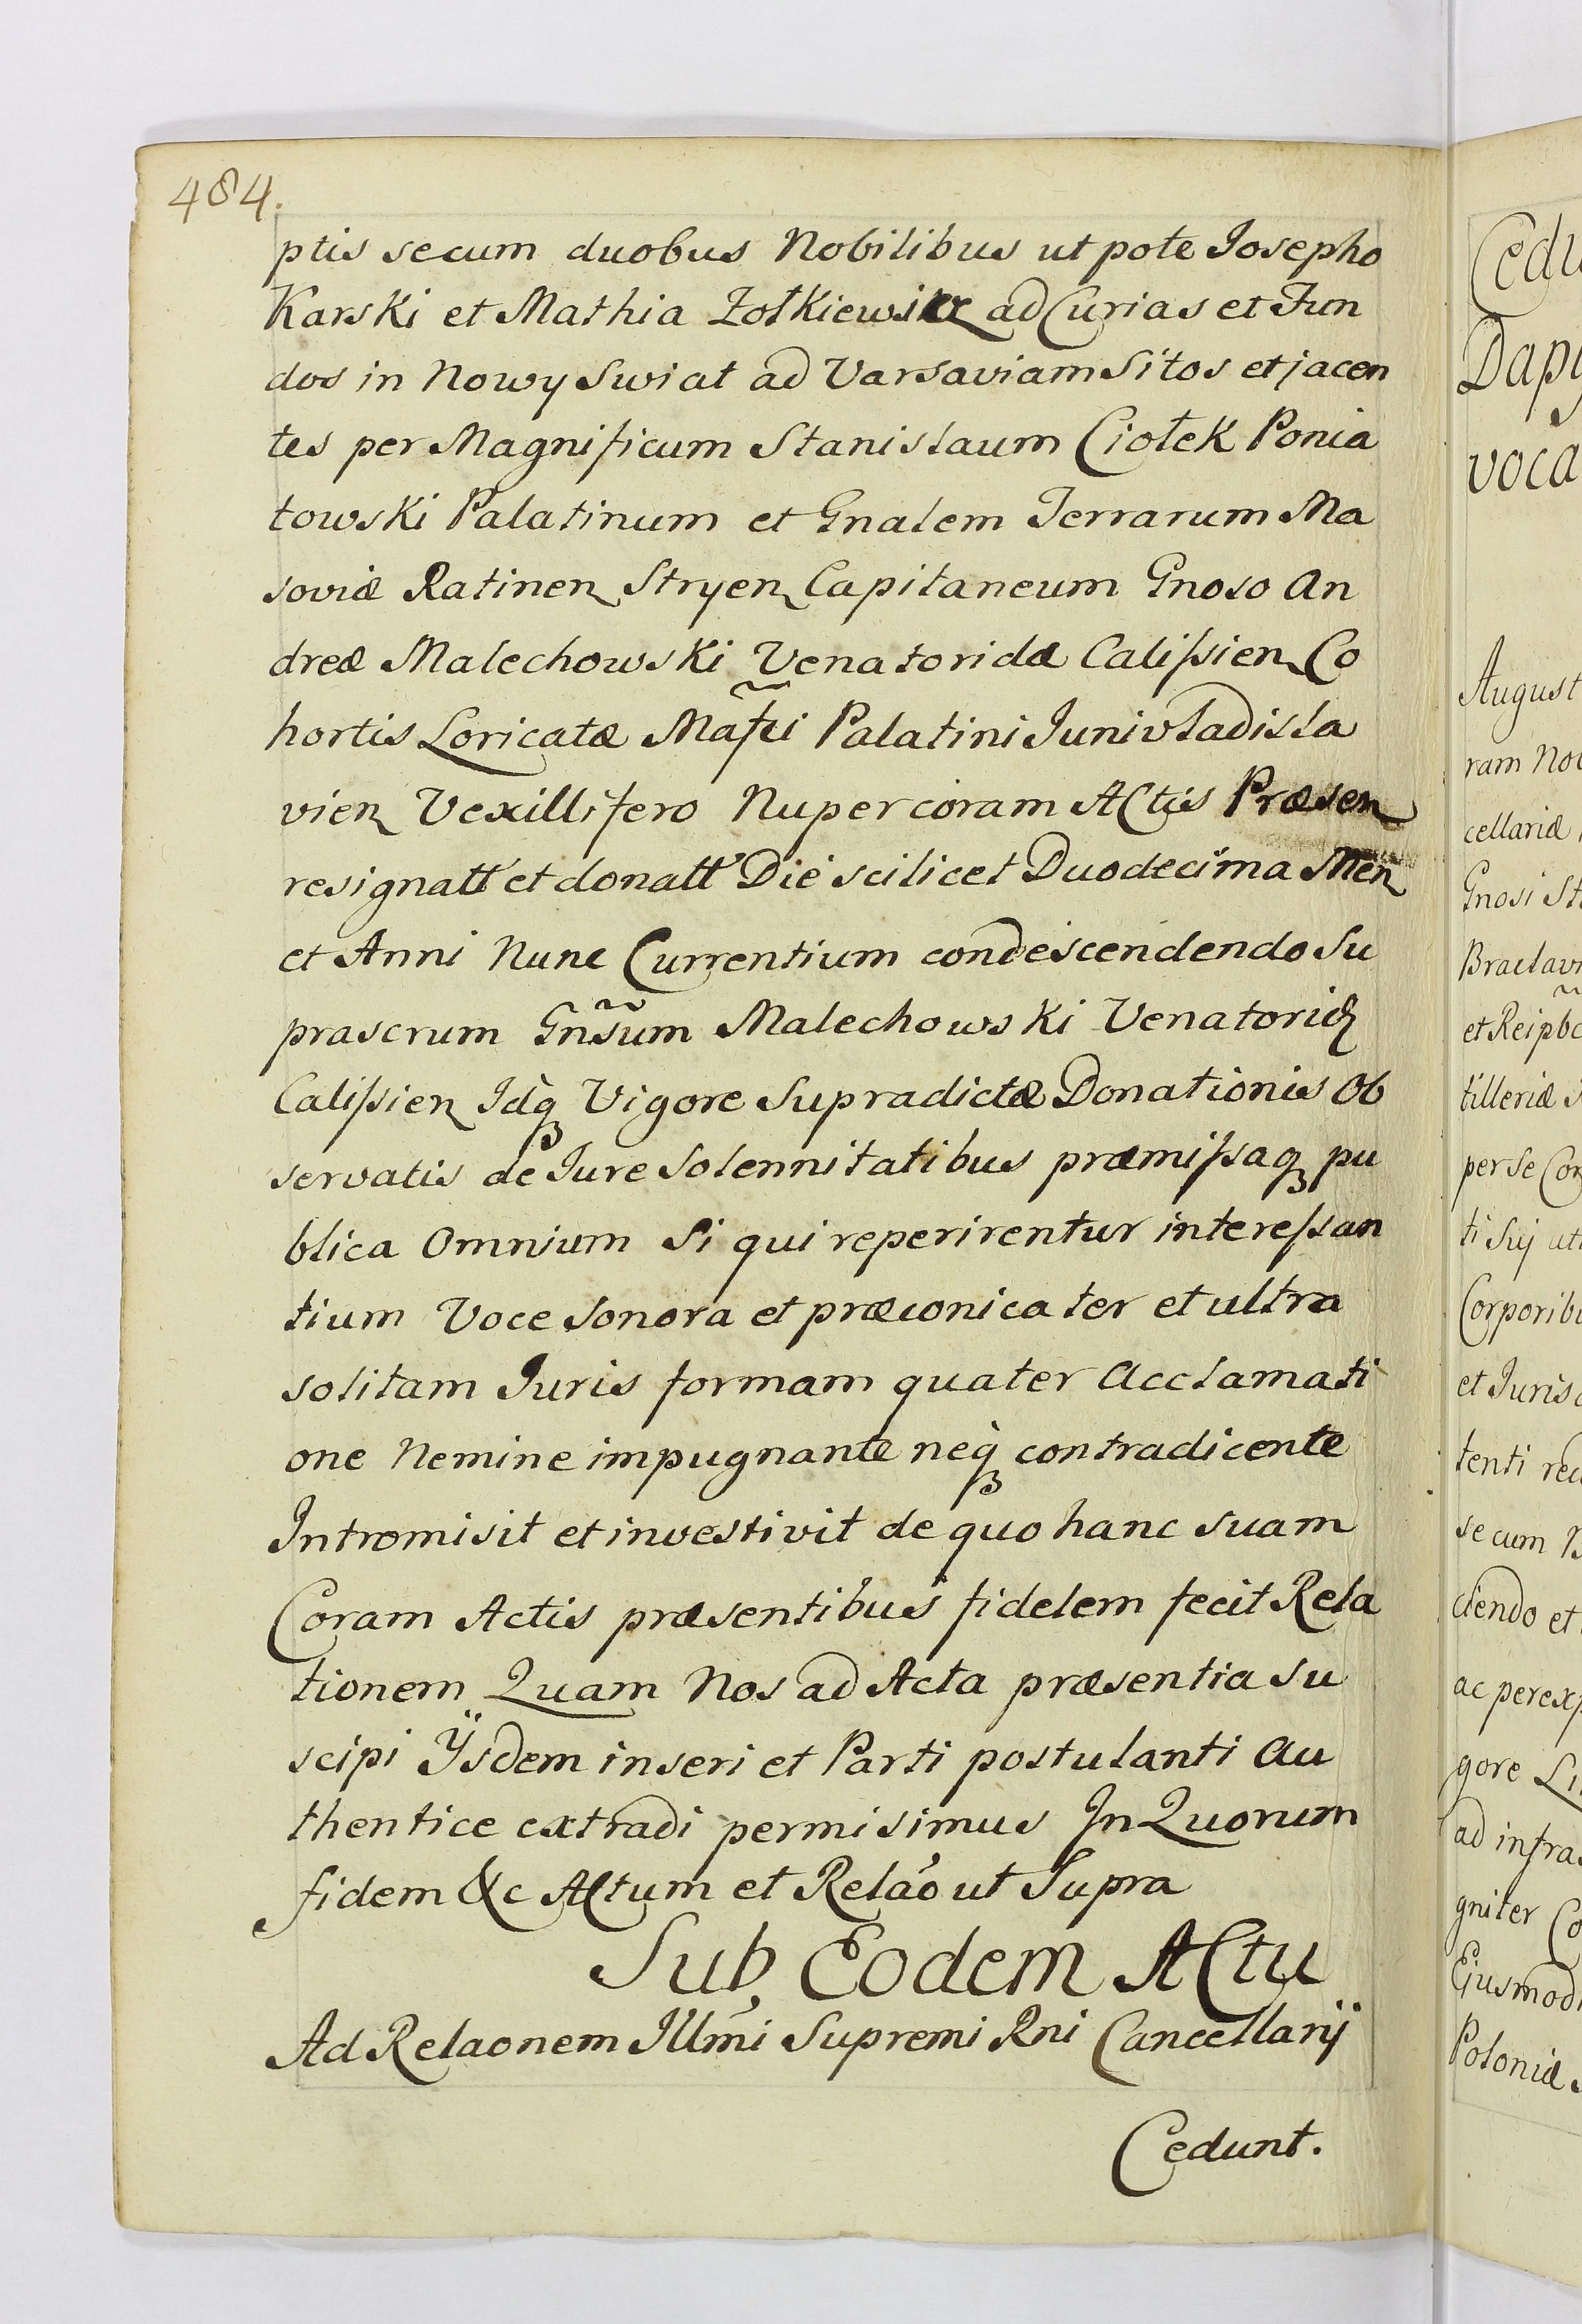 484.
ptis secum duobus Nobilibus ut pote Josepho
Karski et Mathia Żołkiewski ad Curias et Fun
dos in Nowy Swiat ad Varsaviam Sitos et jacen
tes per Magnificum Stanislaum Ciołek Ponia
towski Palatinum et Gnalem Terrarum Ma
soviæ Ratinen Stryen Capitaneum Gnoso An
dreæ Malechowski Venatoridæ Calissien Co
hortis Loricatæ Palatini Junivladisla
vien Vexillifero Nuper coram Actis Præsen
resignatt et donatt Die scilicet Duodecima Men
et Anni Nunc Currentium condescendendo Su
prascrum Gnsum Malechowski Venatorid
Calissien Idq Vigore Supradictæ Donationis Ob
servatis de Jure Solennitatibus præmissaq pu
blica Omnium Si qui reperirentur interessan
tium Voce Sonora et præconica ter et ultra
solitam Juris formam quater Acclamati
one Nemine impugnante neq contradicente
Intromisit et investivit de quo hanc suam
Coram Actis præsentibus fidelem fecit Rela
tionem Quam Nos ad Acta præsentia Su
scipi Ÿsdem inseri et Parti postulanti Au
thentice extradi permisimus In Quorum
fidem &c Actum et Relao ut Supra
Sub Eodem Actu
Ad Relaonem Illmi Supremi Rni Cancellarij
Cedunt.
Dap
voca
August
ram
cellariæ
Gnosi
Braclav
et Reipbc
tilleriæ
per se
ti Sui
Corporib
et Juris
tenti
secum
ciendo et
ac
gore
ad infra
gniter
Ejusmod
Poloniæ